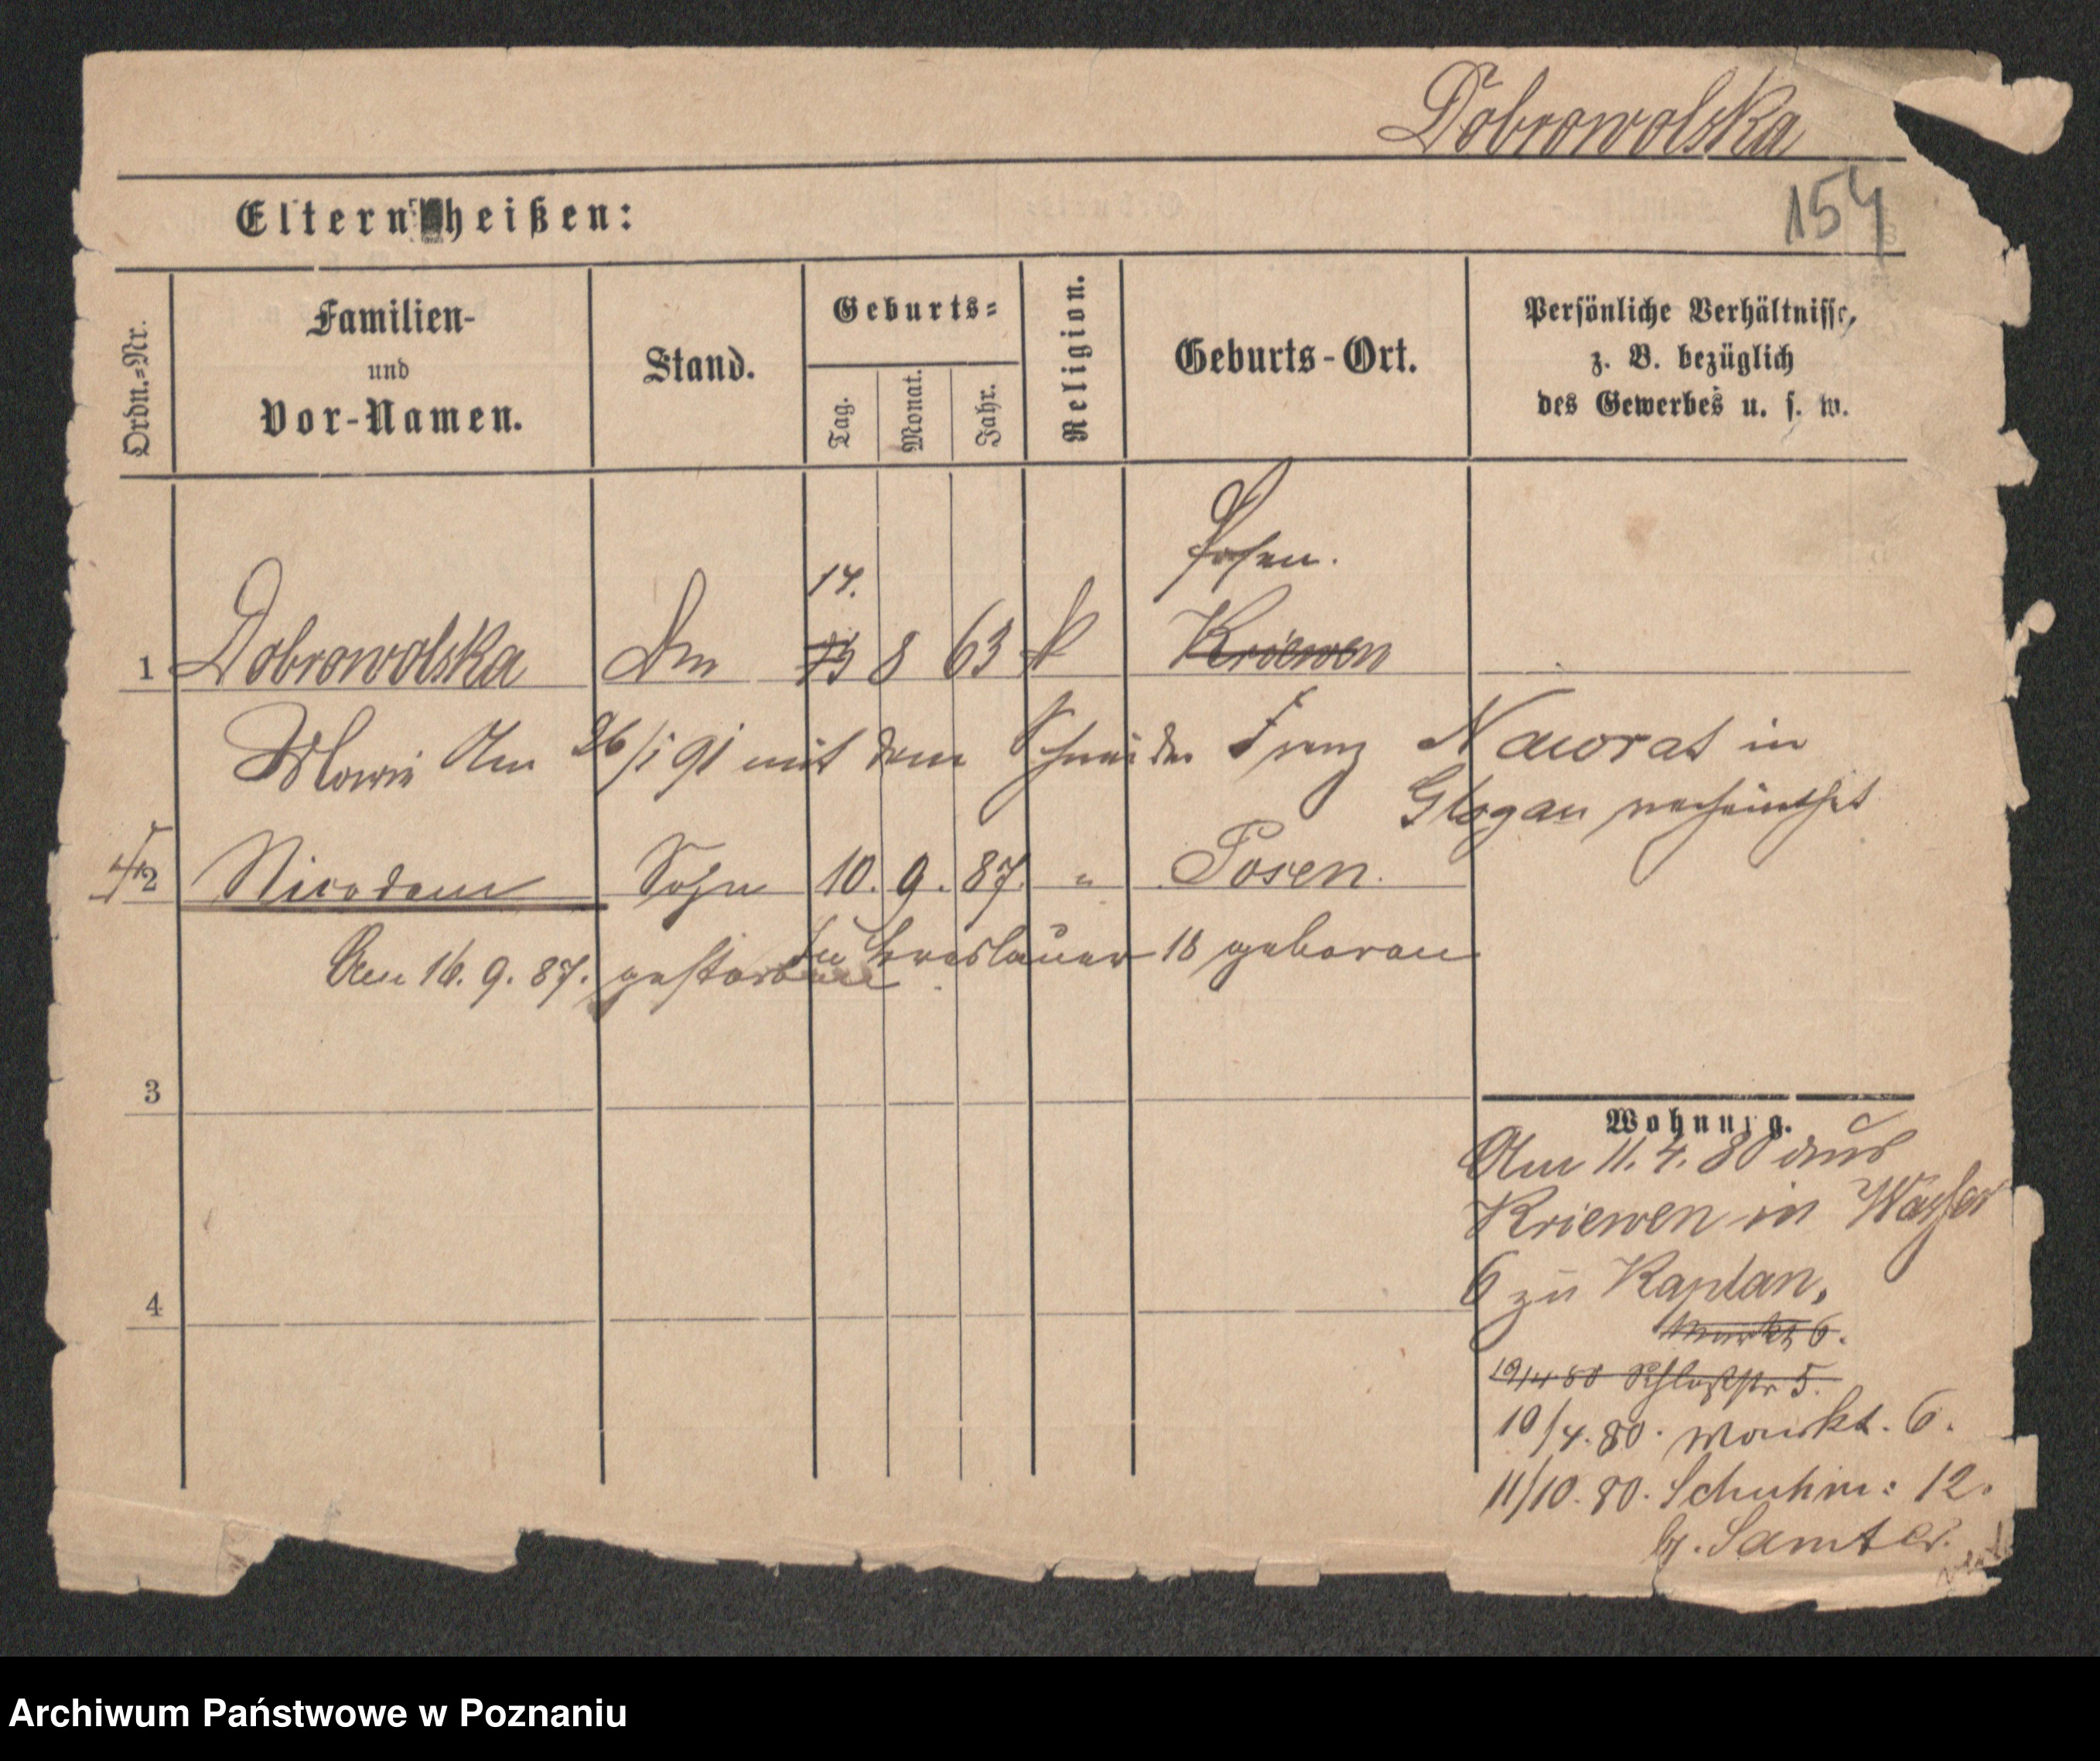 Dobrowolska
154
Eltern heißen:
Ordn.=Nr.
Familien-
und
Vor-Namen.
Stand.
Geburts=
Tag.
Monat.
Jahr.
Religion.
Geburts-Ort.
Persönliche Verhältnisse,
z. B. bezüglich
des Gewerbes u. s. w.
Posen.
14.
1 Dobrowolska 8 63 k Kriewen
Marie Am 26/1 91 mit dem Schneider Franz Nawrat in
Glogau verheirathet
2 Nicodem Sohn 10. 9. 87. " Posen.
In Breslauer 18 geboren
Am 16. 9. 87. gestorben
3
4
Wohnung.
Am 11. 4. 80 aus
Kriewen in Wasser
6 zu Kaplan.
Markt 6.
19/4 80 Schloßstr 5.
10/4. 80. Markt. 6.
11/10. 80. Schuhm: 12.
b. Samter.
Archiwum Państwowe w Poznaniu